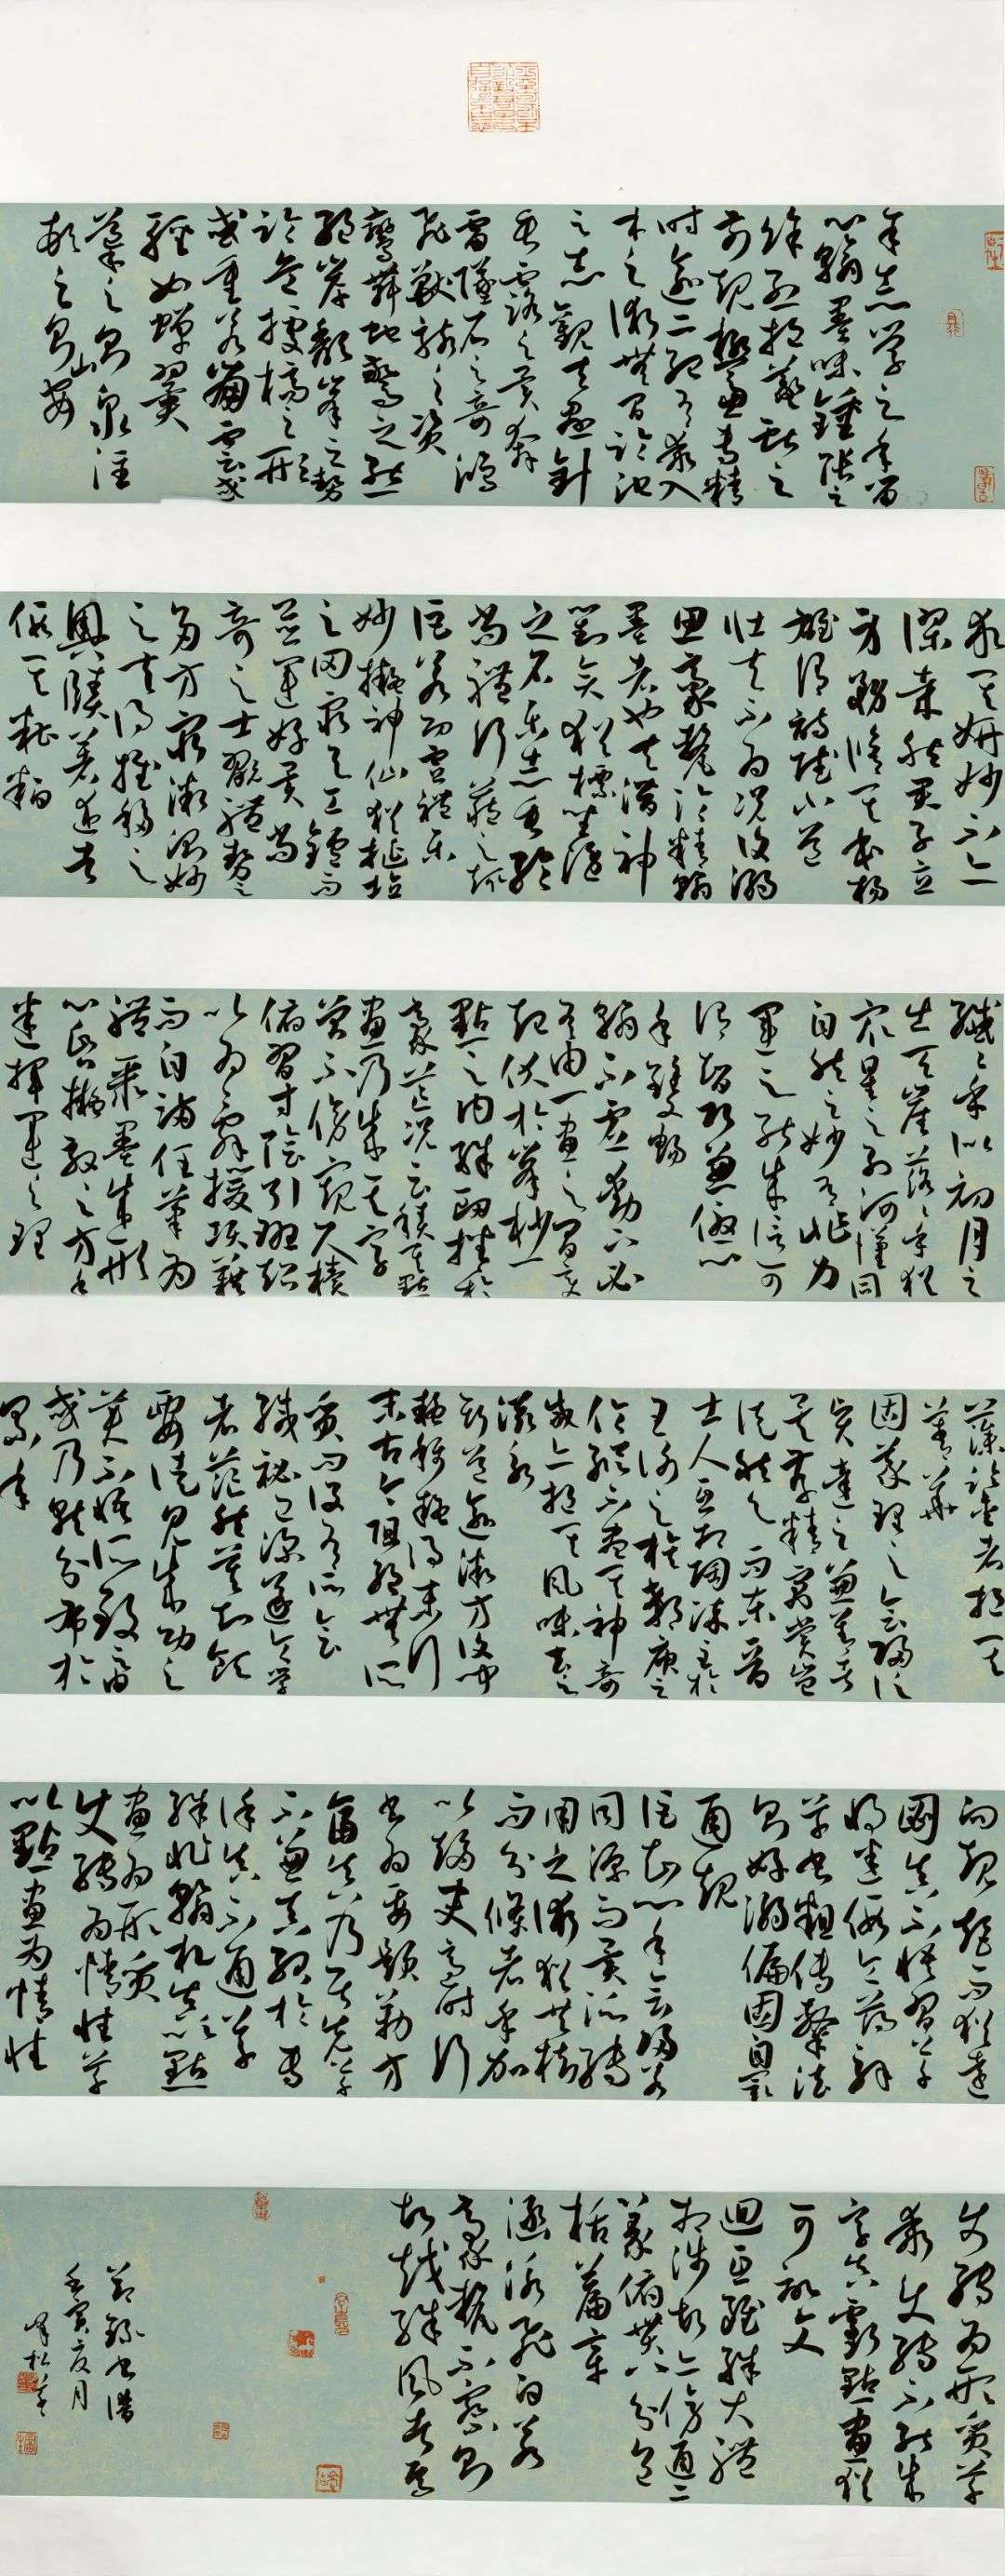 余志學之年留
心翰墨味鍾張之
餘烈挹羲獻之
前規極慮專精
時逾二紀有乖入
木之術無間臨池
之志觀夫懸針
垂露之異奔
雷墜石之奇鴻
飛獸駭之資
鸞舞蛇驚之態
絕岸頹峯之勢
臨危據槁之形
或重若崩雲或
輕如蟬翼
導之則泉注
頓之則山安
求其妍妙不亦
謬哉然君子立
身務修其本楊
雄謂詩賦小道
壯夫不為況復溺
思豪氂淪精翰
墨者也夫潛神
對奕猶標坐隱
之名樂志垂綸
尚體行藏之趣
詎若功宣禮樂
妙擬神仙猶埏埴
之罔窮與工鑪而
並運好異尚
奇之士翫體勢之
多方窮微測妙
之夫得推移之
奧賾著述者
假其糟粕
纖纖乎似初月之
出天崖落落乎猶
眾星之列河漢同
自然之妙有非力
運之能成信可
謂智巧兼優心
手雙暢
翰不虛動下必
有由一畫之間變
起伏於峯杪一
點之內殊衄挫於
豪芒況云積其點
畫乃成其字
曾不傍窺尺牘
俯習寸陰引班超
以為辭援項籍
而自滿任筆為
體聚墨成形
心昏擬效之方手
迷揮運之理
藻鑒者挹其
菁華
固義理之會歸信
賢達之兼善者
矣存精寓賞豈
徒然與而東晉
士人互相陶淬至於
王謝之族郗庾之
倫縱不盡其神奇
咸亦挹其風味去之
滋永
斯道逾微方復聞
疑稱疑得末行
末古今阻絕無所
質問設有所會
緘秘已深遂令學
者茫然莫知領
要徒見成功之
美不悟所致之由
或乃就分布於
累年
向規矩而猶遠
圖真不悟習草
將迷假令薄解
草書粗傳隸法
則好溺偏固自閡
通規
詎知心手會歸若
同源而異派轉
用之術猶共樹
而分條者乎加
以趨變適時行
書為要題勒方
畐真乃居先草
不兼真殆於專
謹真不通草
殊非翰札真以點
畫為形質
使轉為情性草
以點畫為情性
使轉為形質草
乖使轉不能成
字真虧點畫猶
可記文
迴互雖殊大體
相涉故亦傍通二
篆俯貫八分包
括篇章
涵泳飛白若
豪氂不察則
胡越殊風者焉
節錄書譜
壬寅夏月